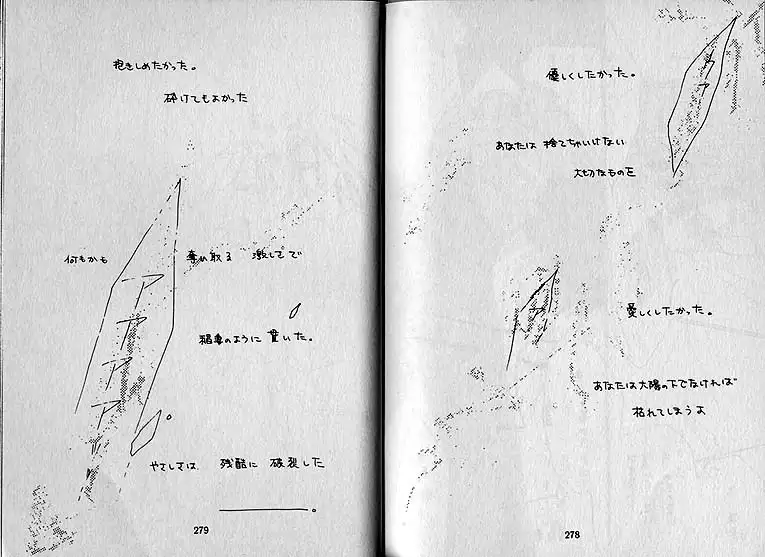 優しくしたかった。
ァァ
あなたは 捨てちゃいけない
大切なものを
ア
愛しくしたかった。
あなたは太陽の下でなければ
枯れてしまうよ
278
抱きしめたかった。
砕けてもよかった
何もかも 奪い取る 激しさで
アアアア
稲妻のように 貫いた。
やさしさは、 残酷に 破裂した
279